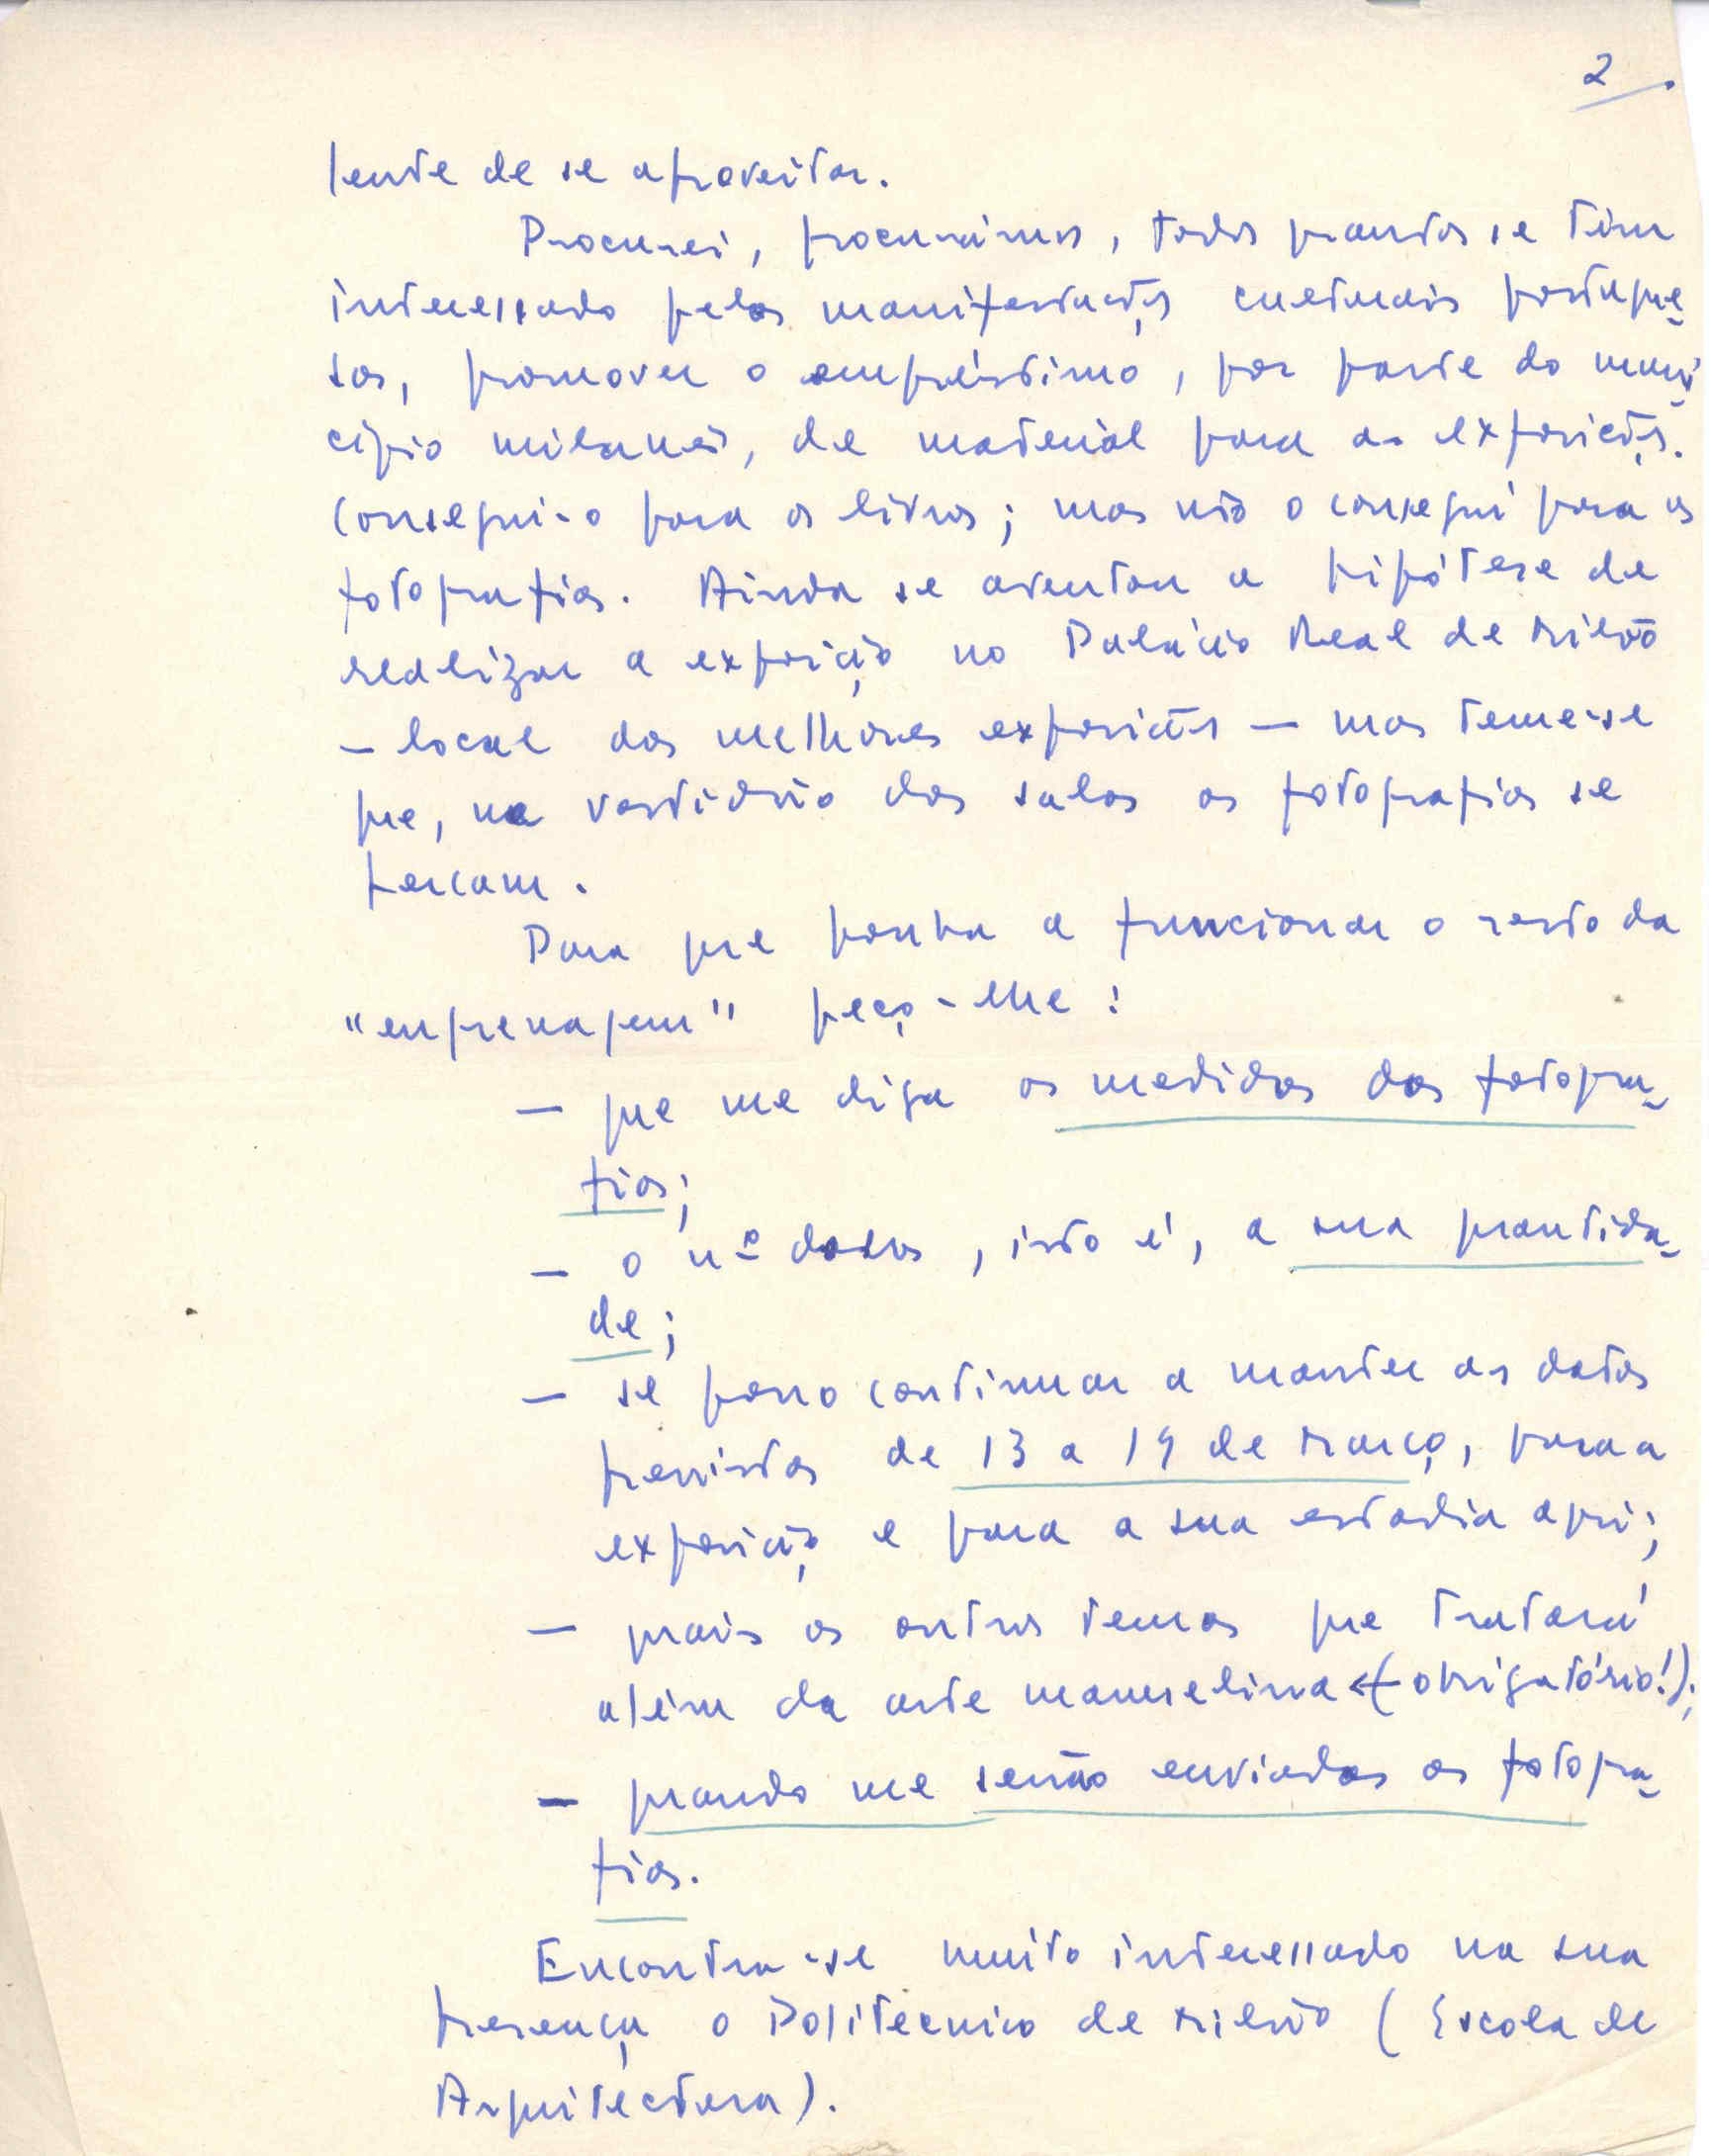 2.
lente de se aproveitar.
Procurei, procurámos, todos quantos se têm
interessado pelas manifestações culturais portugue-
sas, promover o empréstimo, por parte do muni-
cípio milanês, de material para as exposições.
Consegui-o para os livros; mas não o consegui para as
fotografias. Ainda se aventou a hipótese de
realizar a exposição no Palácio Real de Milão
— local das melhores exposições — mas teme-se
que, na vastidão das salas as fotografias se
percam.
Para que ponha a funcionar o resto da
"engrenagem" peço-lhe:
— que me diga as medidas das fotogra-
fias;
— o nº delas, isto é, a sua quantida-
de;
— se posso continuar a manter as datas
previstas de 13 a 19 de Março, para a
exposição e para a sua estadia aqui;
— quais os outros temas que tratará
além da arte manuelina (obrigatório!);
— quando me serão enviadas as fotogra-
fias.
Encontra-se muito interessado na sua
presença o Politecnico de Milão (Escola de
Arquitectura).